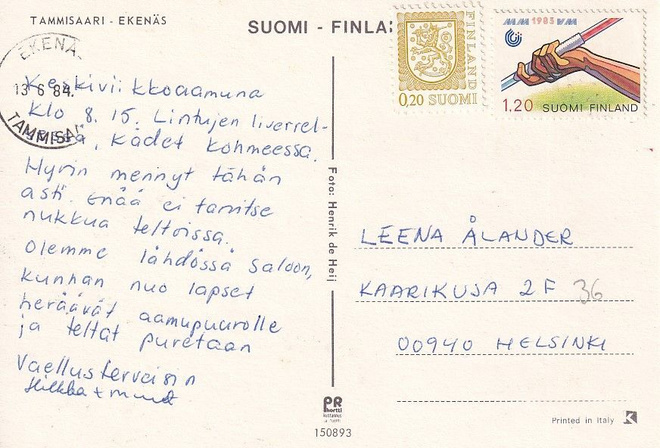 TAMMISAARI - EKENÄS
SUOMI - FINLA
EKENÄ
13 6 84.
TAMMISA
0,20 SUOMI
FINLAND
MM 1983 VM
1.20 SUOMI FINLAND
Keskiviikkoaamuna
klo 8.15. Lintujen liverrel-
lessä, kädet kohmeessa.
Hyvin mennyt tähän
asti. Enää ei tarvitse
nukkua teltoissa.
Olemme lähdössä Saloon,
kunhan nuo lapset
heräävät aamupuurolle
ja teltat puretaan
Vaellusterveisin
Hilkka + muut
Foto: Henrik de Heij
LEENA ÅLANDER
KAARIKUJA 2 F 36
00940 HELSINKI
PR
150893
Printed in Italy